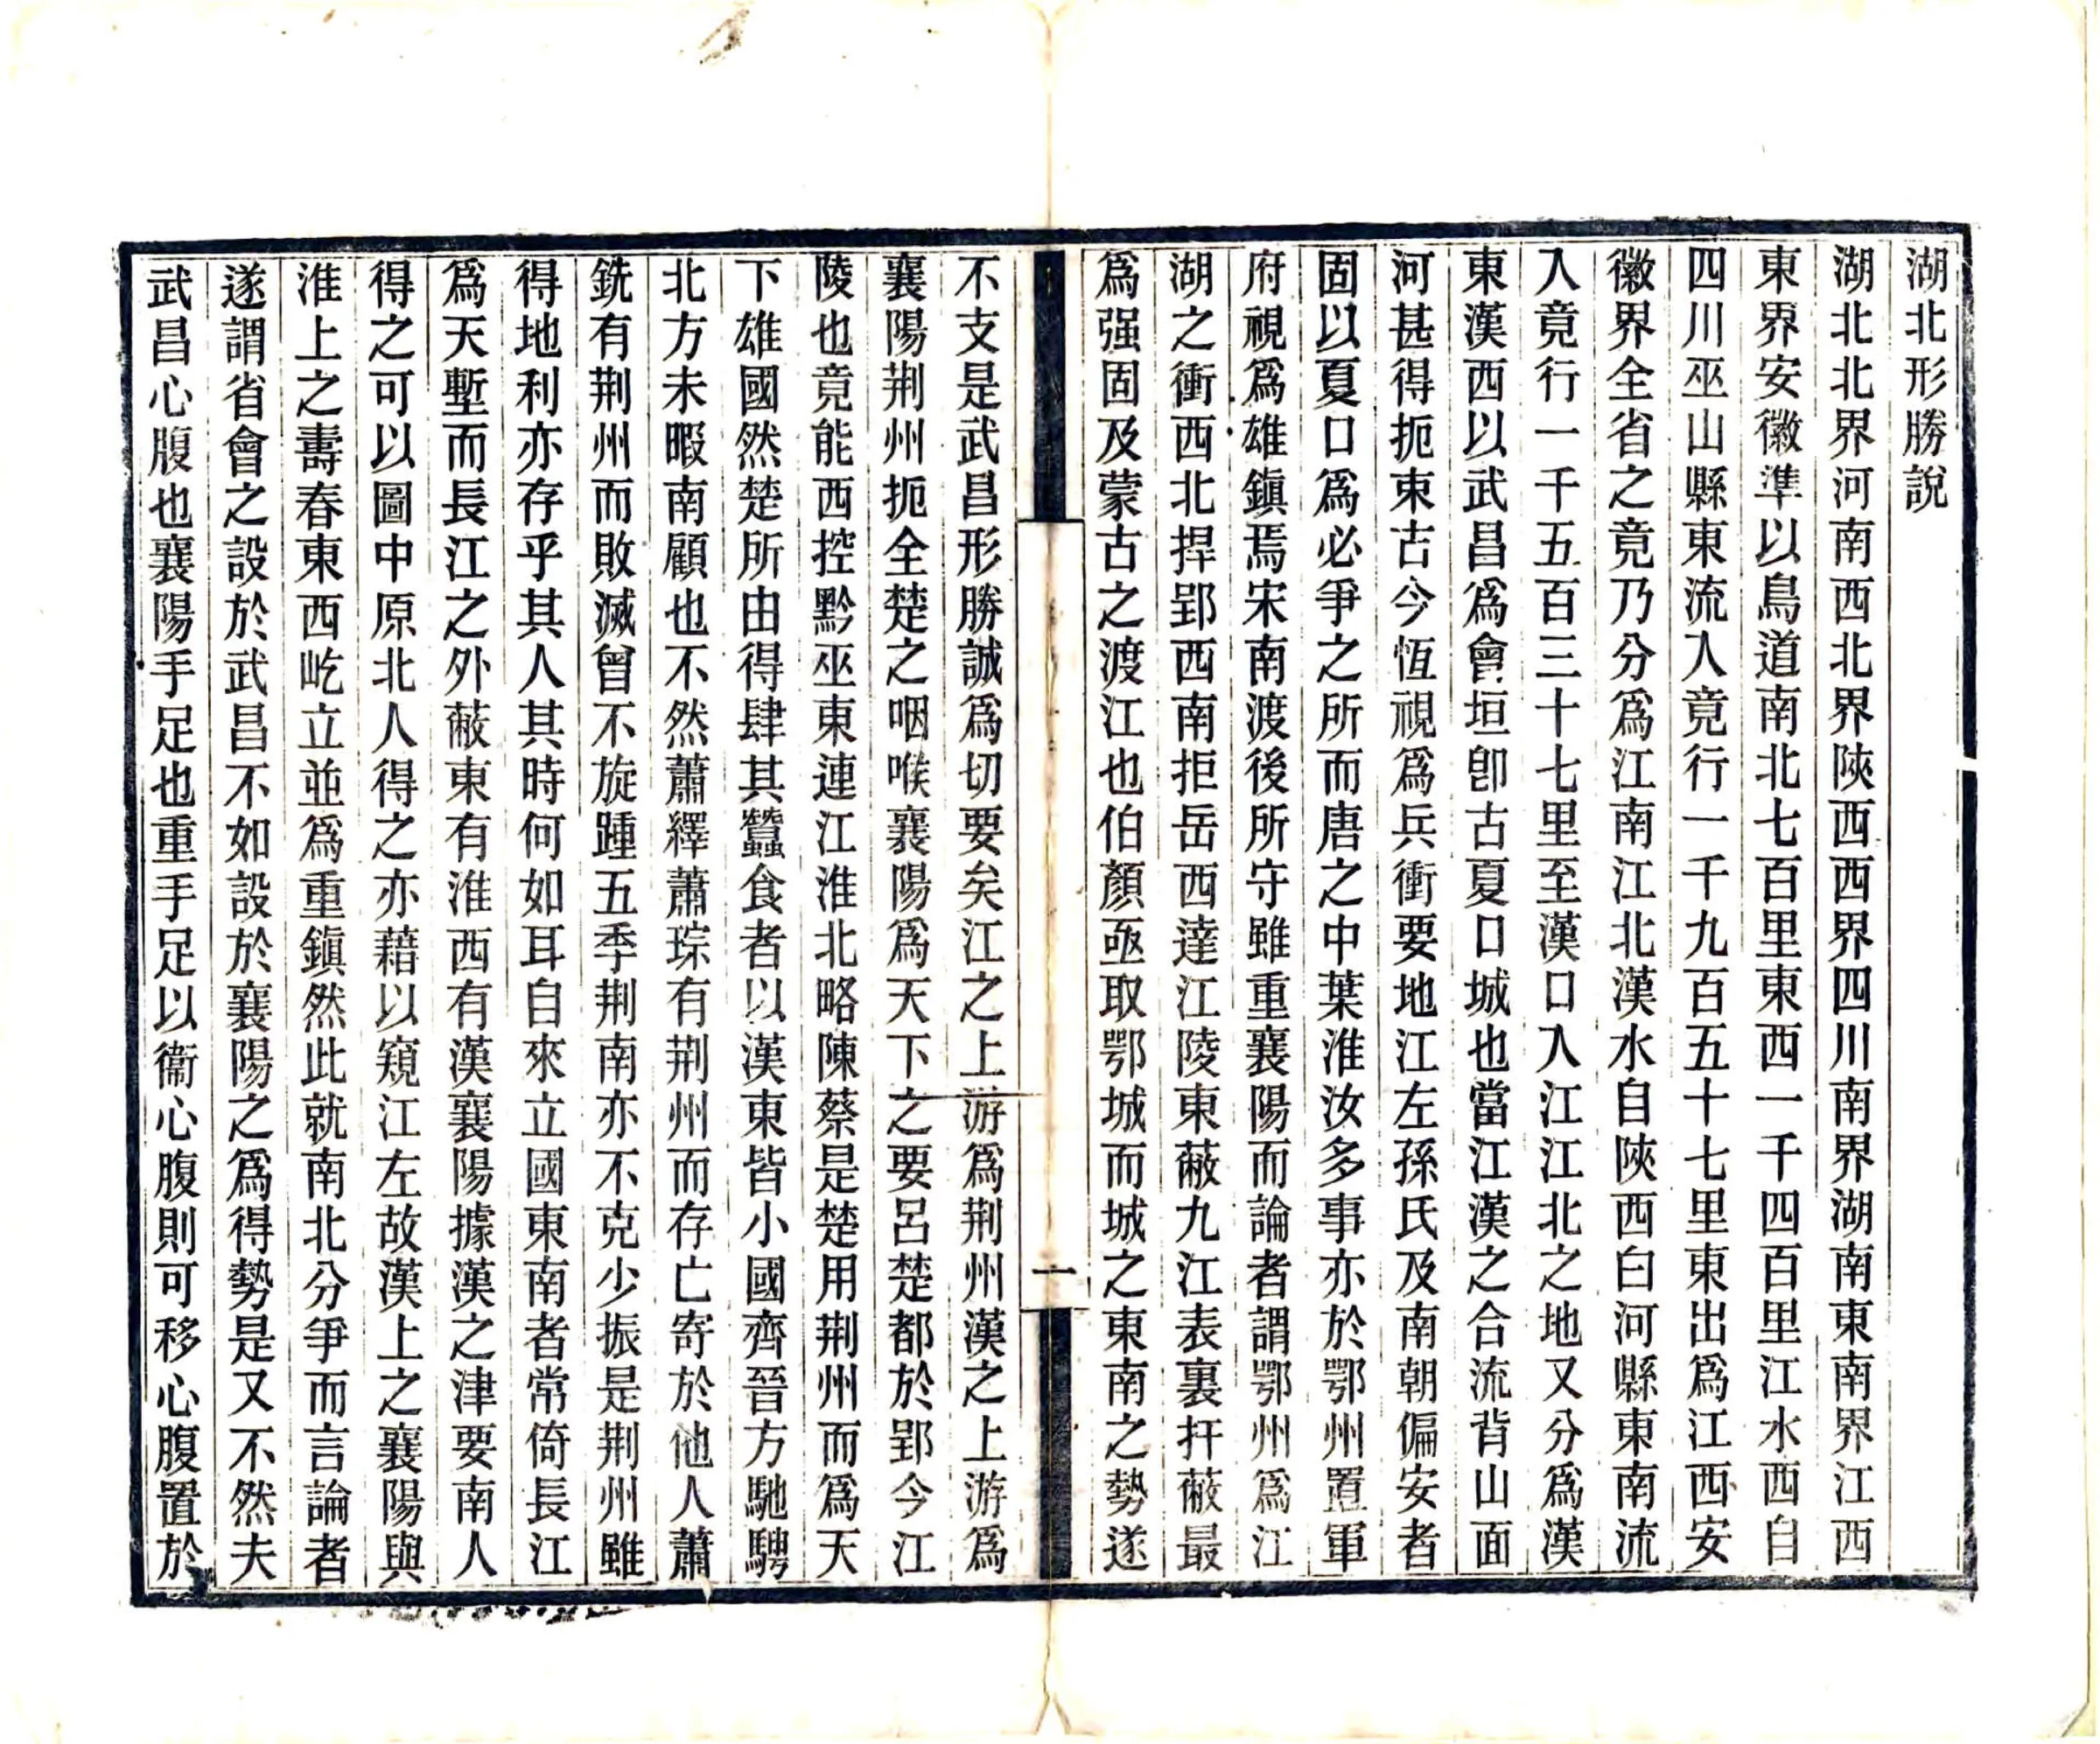 湖北形勝說
湖北北界河南西北界陝西西界四川南界湖南東南界江西
東界安徽準以鳥道南北七百里東西一千四百里江水西自
四川巫山縣東流入竟行一千九百五十七里東出爲江西安
徽界全省之竟乃分爲江南江北漢水自陝西白河縣東南流
入竟行一千五百三十七里至漢口入江江北之地又分爲漢
東漢西以武昌爲會垣卽古夏口城也當江漢之合流背山面
河甚得扼束古今恆視爲兵衝要地江左孫氏及南朝偏安者
固以夏口爲必爭之所而唐之中葉淮汝多事亦於鄂州置軍
府視爲雄鎭焉宋南渡後所守雖重襄陽而論者謂鄂州爲江
湖之衝西北捍郢西南拒岳西達江陵東蔽九江表裏扞蔽最
爲强固及蒙古之渡江也伯顏亟取鄂城而城之東南之勢遂
一
不支是武昌形勝誠爲切要矣江之上游爲荆州漢之上游爲
襄陽荆州扼全楚之咽喉襄陽爲天下之要呂楚都於郢今江
陵也竟能西控黔巫東連江淮北略陳蔡是楚用荆州而爲天
下雄國然楚所由得肆其蠶食者以漢東皆小國齊晉方馳騁
北方未暇南顧也不然蕭繹蕭琮有荆州而存亡寄於他人蕭
銑有荆州而敗滅曾不旋踵五季荆南亦不克少振是荆州雖
得地利亦存乎其人其時何如耳自來立國東南者常倚長江
爲天塹而長江之外蔽東有淮西有漢襄陽據漢之津要南人
得之可以圖中原北人得之亦藉以窺江左故漢上之襄陽與
淮上之壽春東西屹立並爲重鎭然此就南北分爭而言論者
遂謂省會之設於武昌不如設於襄陽之爲得勢是又不然夫
武昌心腹也襄陽手足也重手足以衞心腹則可移心腹置於